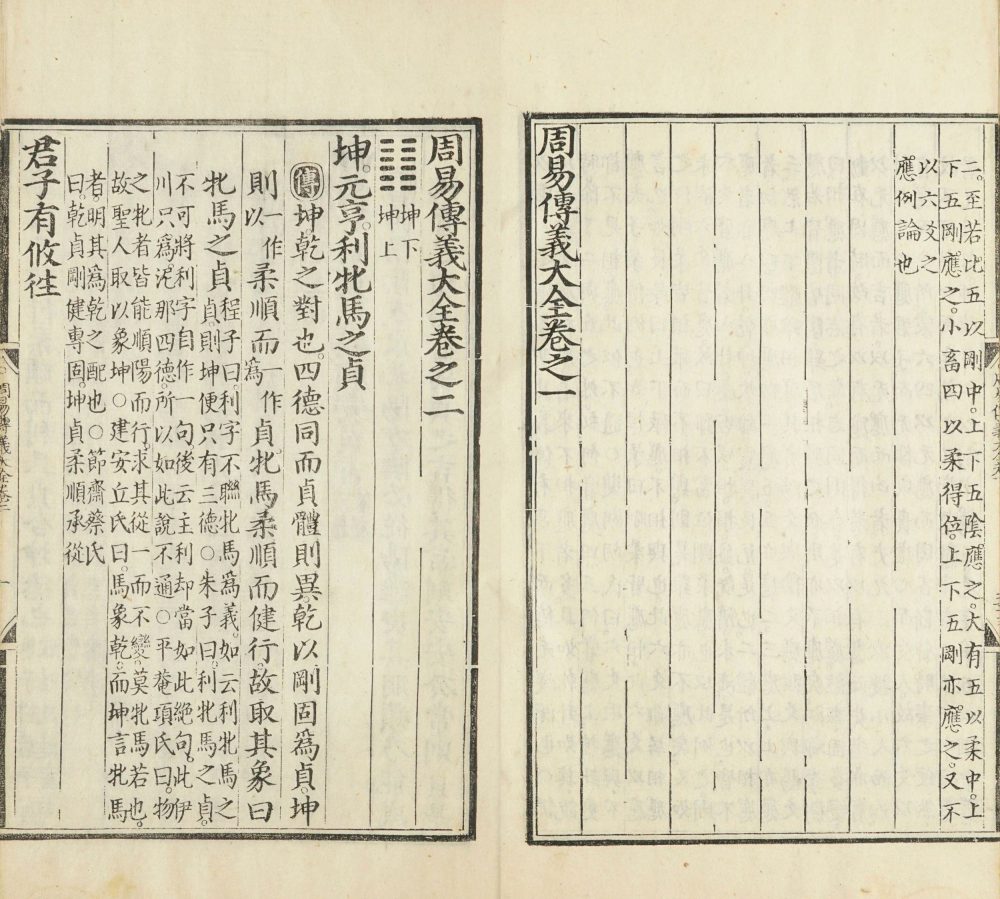 二。至若比五以剛中。上下五陰應之。大有五以柔中。上
下五剛應之。小畜四以柔得位。上下五剛亦應之。又不
以六爻之
應例論也
周易傳義大全卷之一
周易傳義大全卷之二
坤下
坤上
坤。元亨。利牝馬之貞
傳坤。乾之對也。四德同而貞體則異。乾以剛固爲貞。坤
則一作以柔順而一作爲貞。牝馬柔順而健行。故取其象曰
牝馬之貞程子曰。利字不聯牝馬爲義。如云利牝馬之
貞。則坤便只有三德。○朱子曰。利牝馬之貞。
不可將利字自作一句。後云主利。却當如此絕句。此伊
川只爲泥那四德。所以如此說不通。○平菴項氏曰。物
之牝者皆能順陽而行。求其從一而不變。莫牝馬若也。
故聖人取以象坤。○建安丘氏曰。馬象乾。而坤言牝馬
者。明其爲乾之配也。○節齋蔡氏
曰。乾貞剛健專固。坤貞柔順承從
君子有攸往